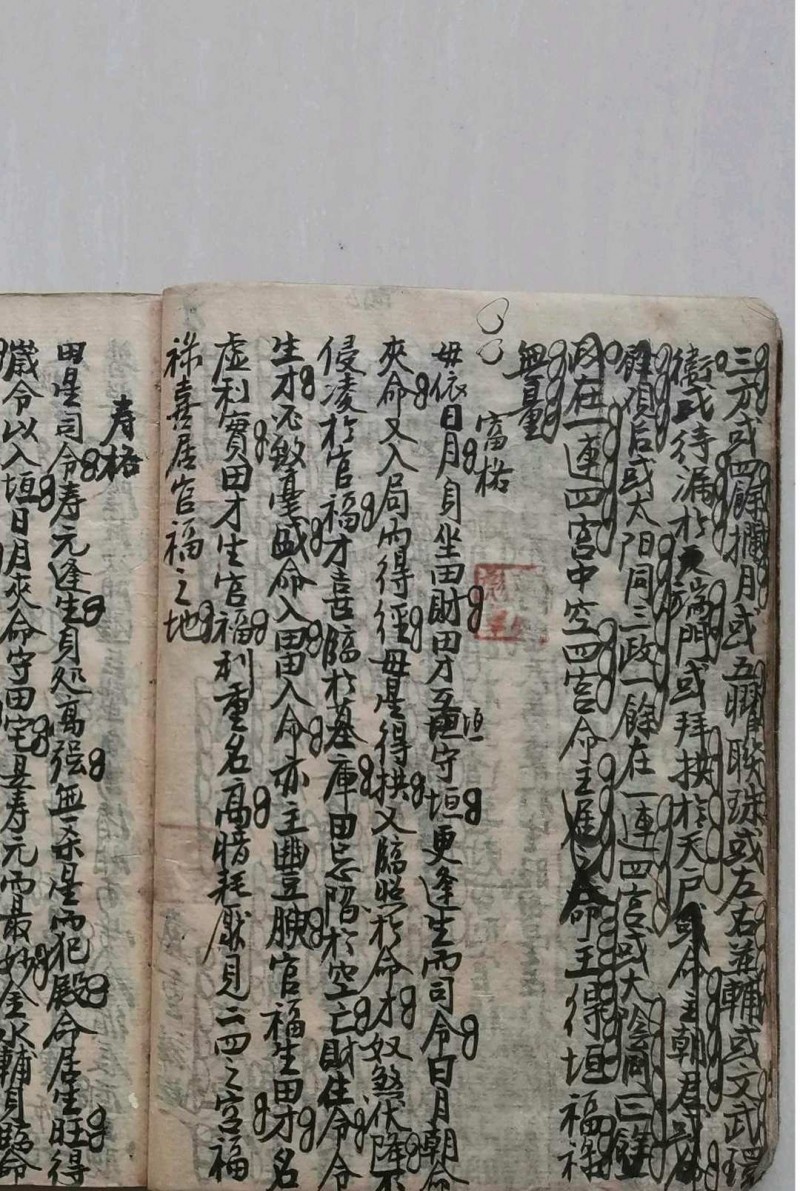 三方或四餘攔月或五曜聯珠或左右並輔或文武環
衛或待漏於天端門或拜拱於天戶或命主朝君或
餘環后或太阳同三政一餘在一連四宮或太陰同三餘
在一連四宮中空四宮命主命主得垣福祿
無量
富格
毋依日月身坐田財田才互垣守垣更逢生而司令日月朝命
夾命又入局內得徑毋星得拱又臨照於命才奴煞伏降不
侵凌於官福才喜臨於基庫田忌陷於空亡財住令令
生才必致臺盛命入田田入命亦主豐腴官福生田才名
虛利實田才生官福利重名高暗耗厭見二四之宮福
祿喜居官福之地
寿格
田星司令寿元逢生貝処高強無杀星而犯殿命居生旺得
歲令以入垣日月夾命守田宅且寿元而最妙金水輔貝臨命